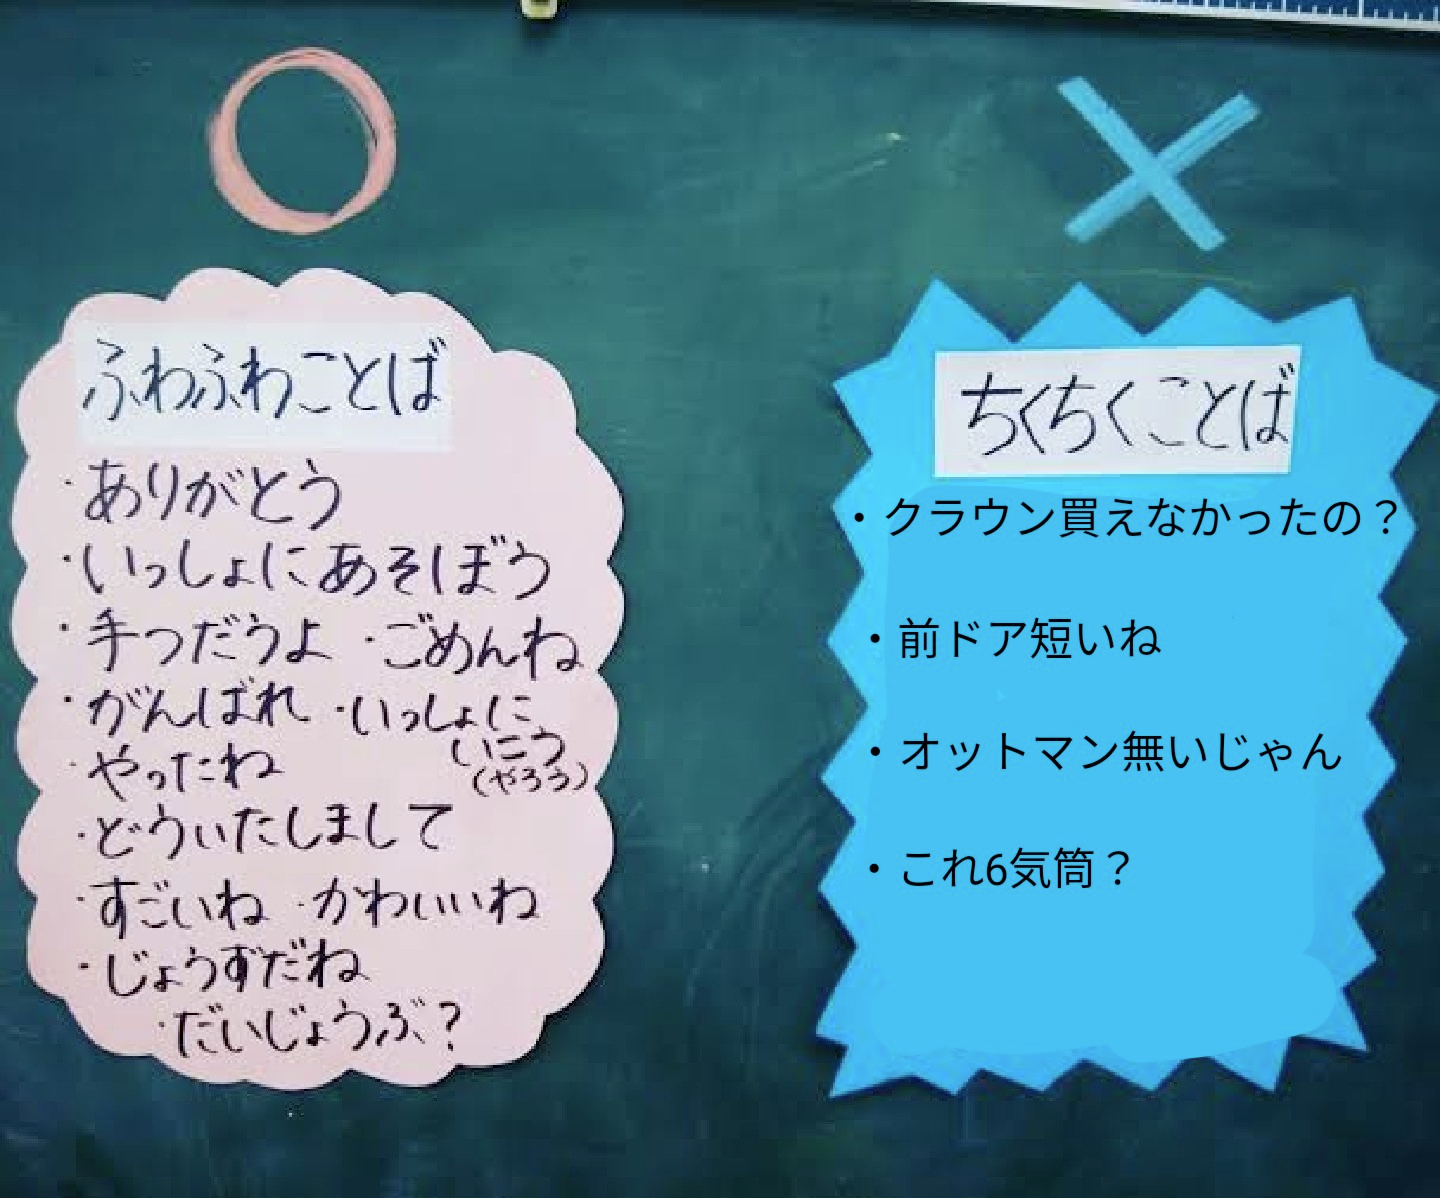 ふわふわことば
・ありがとう
・いっしょにあそぼう
・手つだうよ ・ごめんね
・がんばれ ・いっしょに
いこう
(やろう)
・やったね
・どういたしまして
・すごいね ・かわいいね
・じょうずだね
・だいじょうぶ?
ちくちくことば
・クラウン買えなかったの？
・前ドア短いね
・オットマン無いじゃん
・これ6気筒？